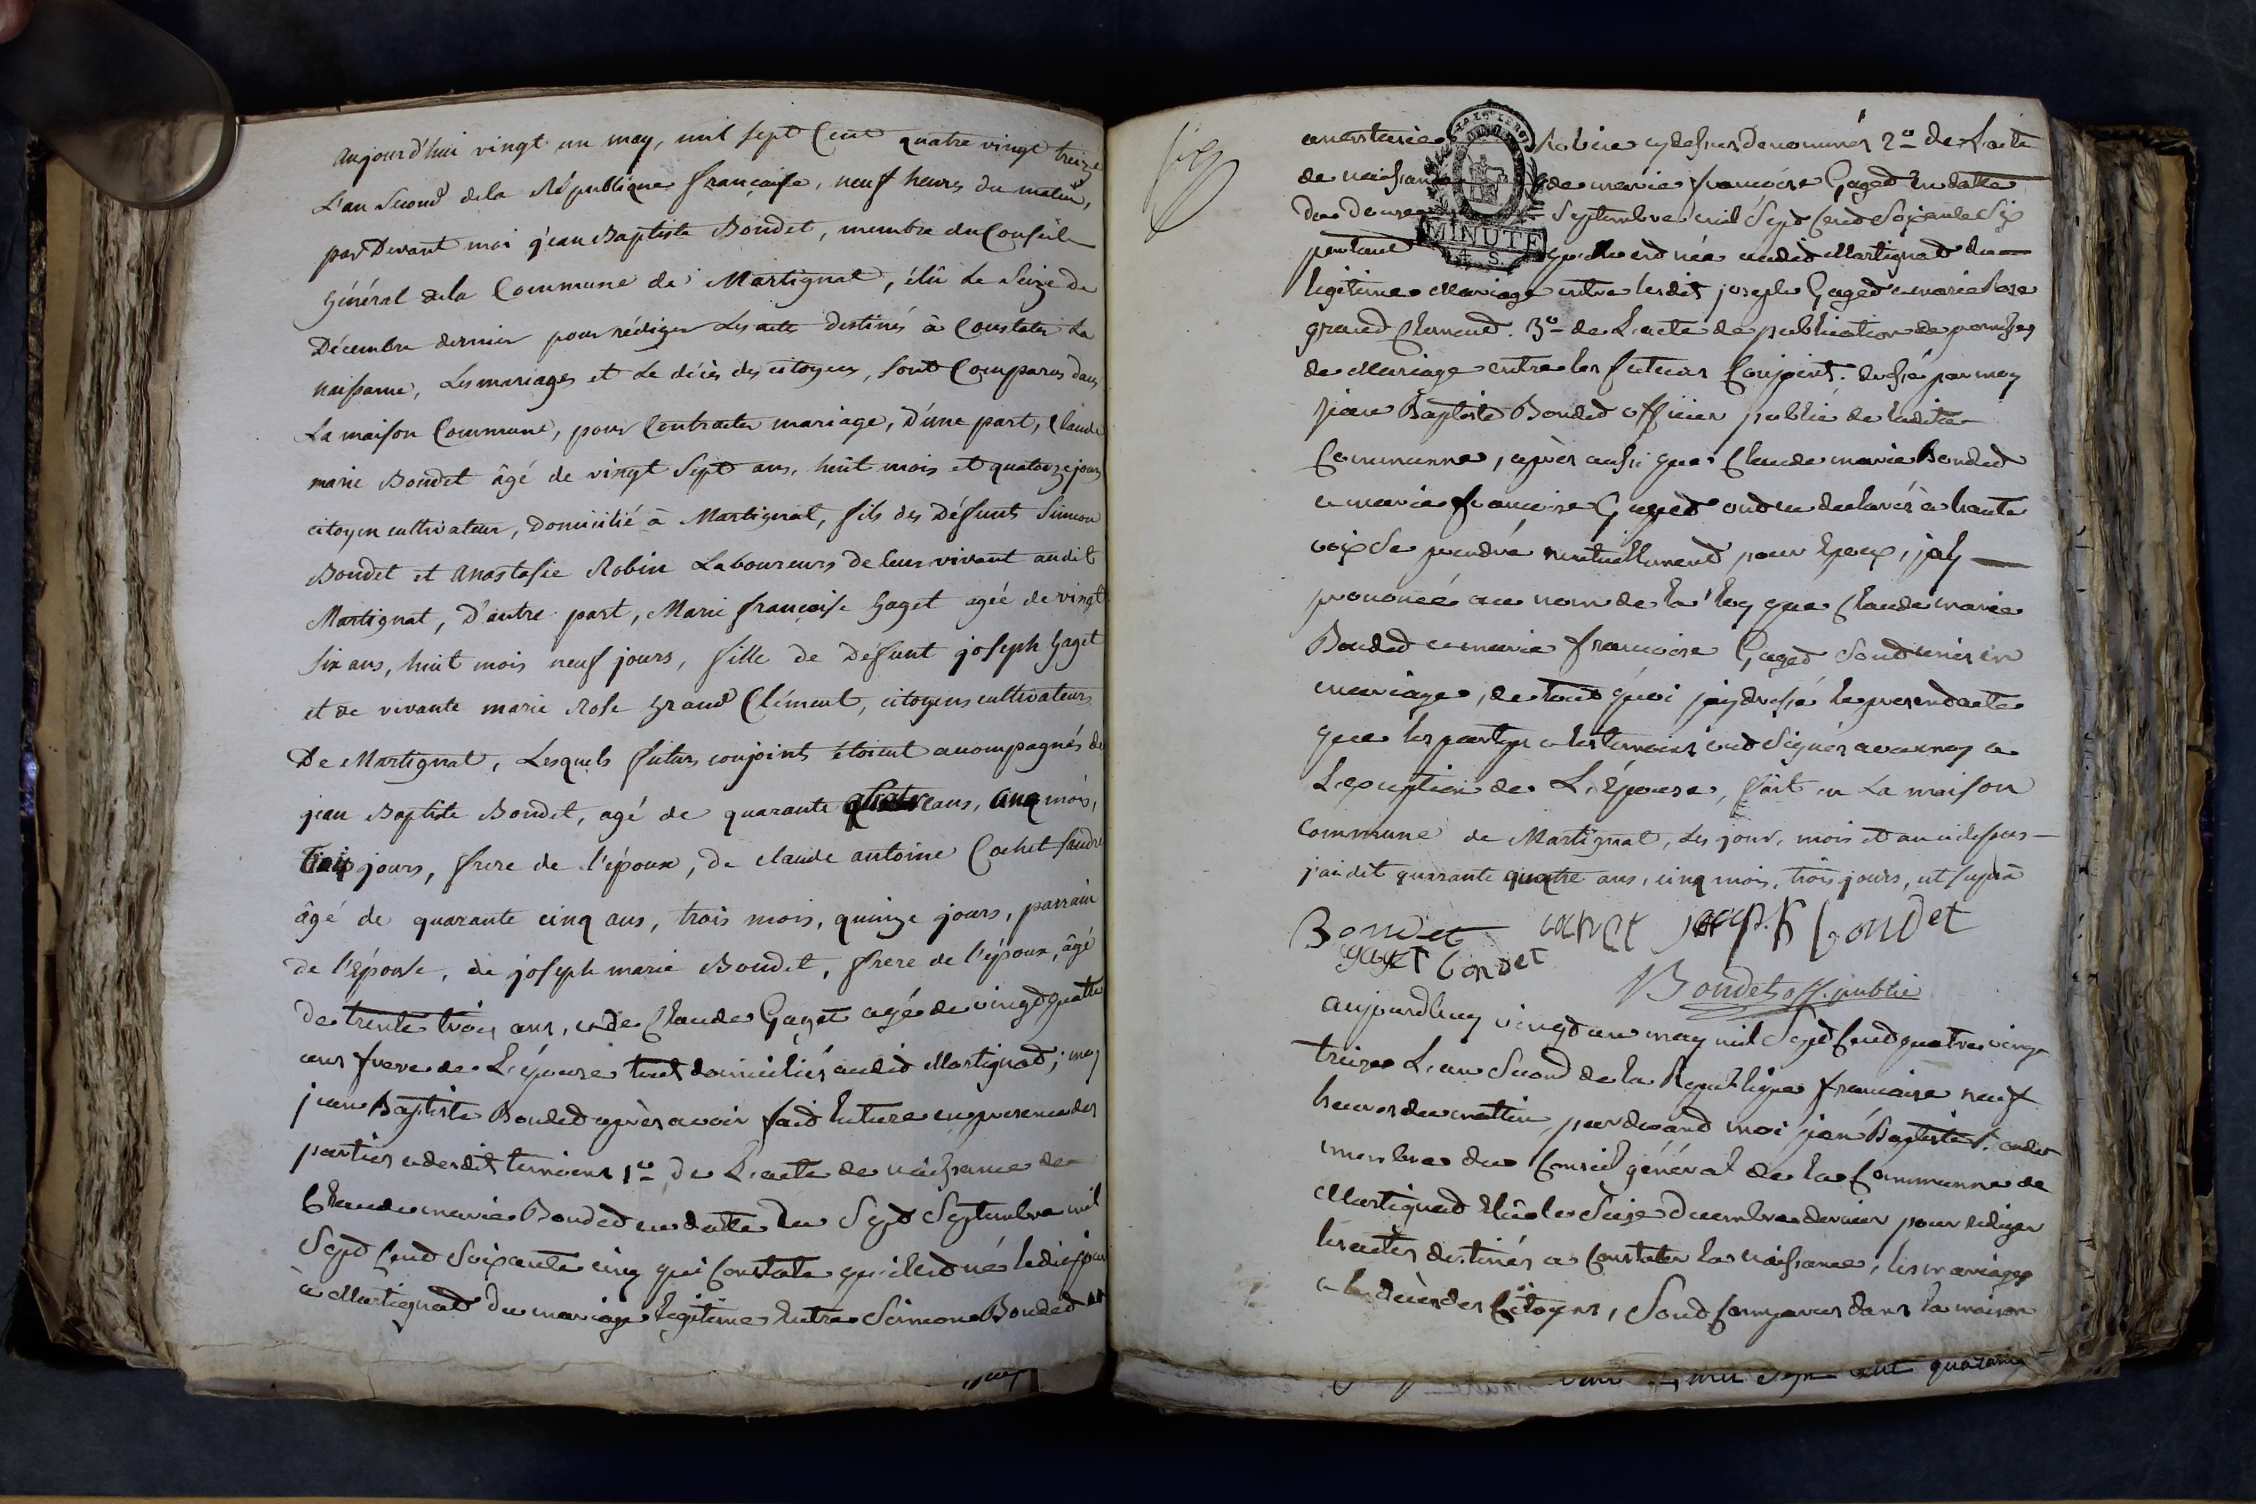 Aujourd'hui vingt un may, mil sept Cent quatre vingt treize
L'an Second de la République française, neuf heures du matin,
par Devant moi jean Baptiste Bondet, membre du Conseil
Général de la Commune de Martignat, élu le Seize de
Décembre dernier pour rédiger les acte destinés à Constater la
naissance, Les mariages et Le décès des citoyens, sont Comparus dans
La maison Commune, pour Contracter mariage, D'une part, Claude
marie Bondet âgé de vingt Sept ans, huit mois et quatorze jours
citoyen cultivateur, Domicilié à Martignat, fils des Défunts Simon
Bondet et Anastasie Robin Laboureurs De leur vivant audit
Martignat, D'autre part, Marie françoise Gaget agée de vingt
Six ans, huit mois neuf jours, fille de Defunt joseph Gaget
et de vivante marie Rose Grand Clément, citoyens cultivateurs
De Martignat, Lesquels futurs conjoints étoient accompagnés de
jean Baptiste Bondet, agé de quarante quatre ans, cinq mois,
trois jours, frere de l'époux, de claude antoine Cochet
âgé de quarante cinq ans, trois mois, quinze jours, parrain
de l'épouse, de joseph marie Bondet, frere de l'époux, âgé
de trente trois ans, et de Claude Gaget agé de vingt quatre
ans frere de L'épouse tout domiciliés audit Martignad; moy
jean Baptiste Bonded après avoir faid lecture en presence des
parties et desdit temoins 1º de L'acte de naissance de
Claude marie Bonded en datte du Sept Septembre mil
Sept Cend Soixante cinq qui Constate qu'il est né ledit jour
à Martignad du mariage legitime Entre Simon Bonded
anastasie Robin cy dessus denommés 2º de L'acte
de naissance de marie francoise Gaged En datte
du douze Septembre mil Sept Cend Soixante Six
MINUTE
4 S.
portant qu'elle est née audit Martignad du
legitime Mariage entre lesdit joseph Gaged et marie Rose
grand Clemend. 3º de L'acte de publication de promesses
de Mariage entre les futurs Conjoint. dressé par moy
jean Baptiste Bonded officier public de ladite
Commune, après aussi que Claude marie Bonded
et marie francoise Gaged ond eu declarés à haute
voix Se prendre mutuellemend pour Epoux, jay
prononcé au nom de la loy que Claude marie
Bonded et marie francoise Gaged Sond unis en
mariage, de tout quoi jay dressé le present acte
que les partyes et les temoins ond Signés avec moy a
L'exception de L'Épouse, fait en La maison
Commune de Martignat, Les jour, mois et an ci dessus
j'ai dit quarante quatre ans, cinq mois, trois jours, ut supra
Bondet cochet joseph bondet
gaget bondet
Bondet off. public
aujourdhuy vingt un may mil Sept Cend quatre vingt
treize L'an Second de la Republique francaise neuf
heures du mattin, par devand moi jean Baptiste Bondet
membre du Conseil général de la Commune de
Martignad Elû le Seize decembre dernier pour rediger
les actes destinés a Constater la naissance, les mariages
et le deces des Citoyens, Sond Comparus dans la maison